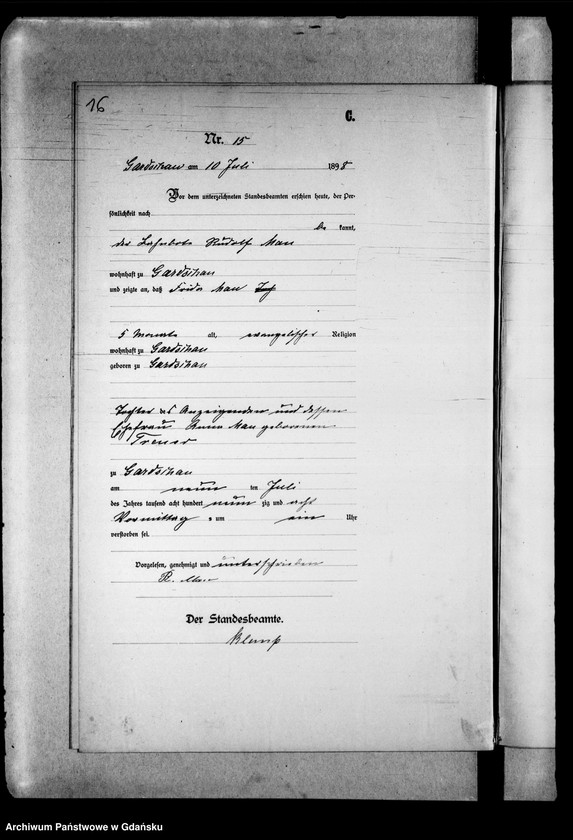 16
C.
Nr. 15
Gardschau am 10 Juli 1898
Vor dem unterzeichneten Standesbeamten erschien heute, der Per-
sönlichkeit nach
be kannt,
der Rudolf Man
wohnhaft zu Gardschau
und zeigte an, daß Frida Man
5 Monate alt, evangelischer Religion
wohnhaft zu Gardschau
geboren zu Gardschau
Tochter des Anzeigenden und dessen
Ehefrau Anna Man geborenen
zu Gardschau
am neun ten Juli
des Jahres tausend acht hundert neun zig und acht
Vormittag s um ein Uhr
verstorben sei.
Vorgelesen, genehmigt und unterschrieben
R. Man
Der Standesbeamte.
Archiwum Państwowe w Gdańsku